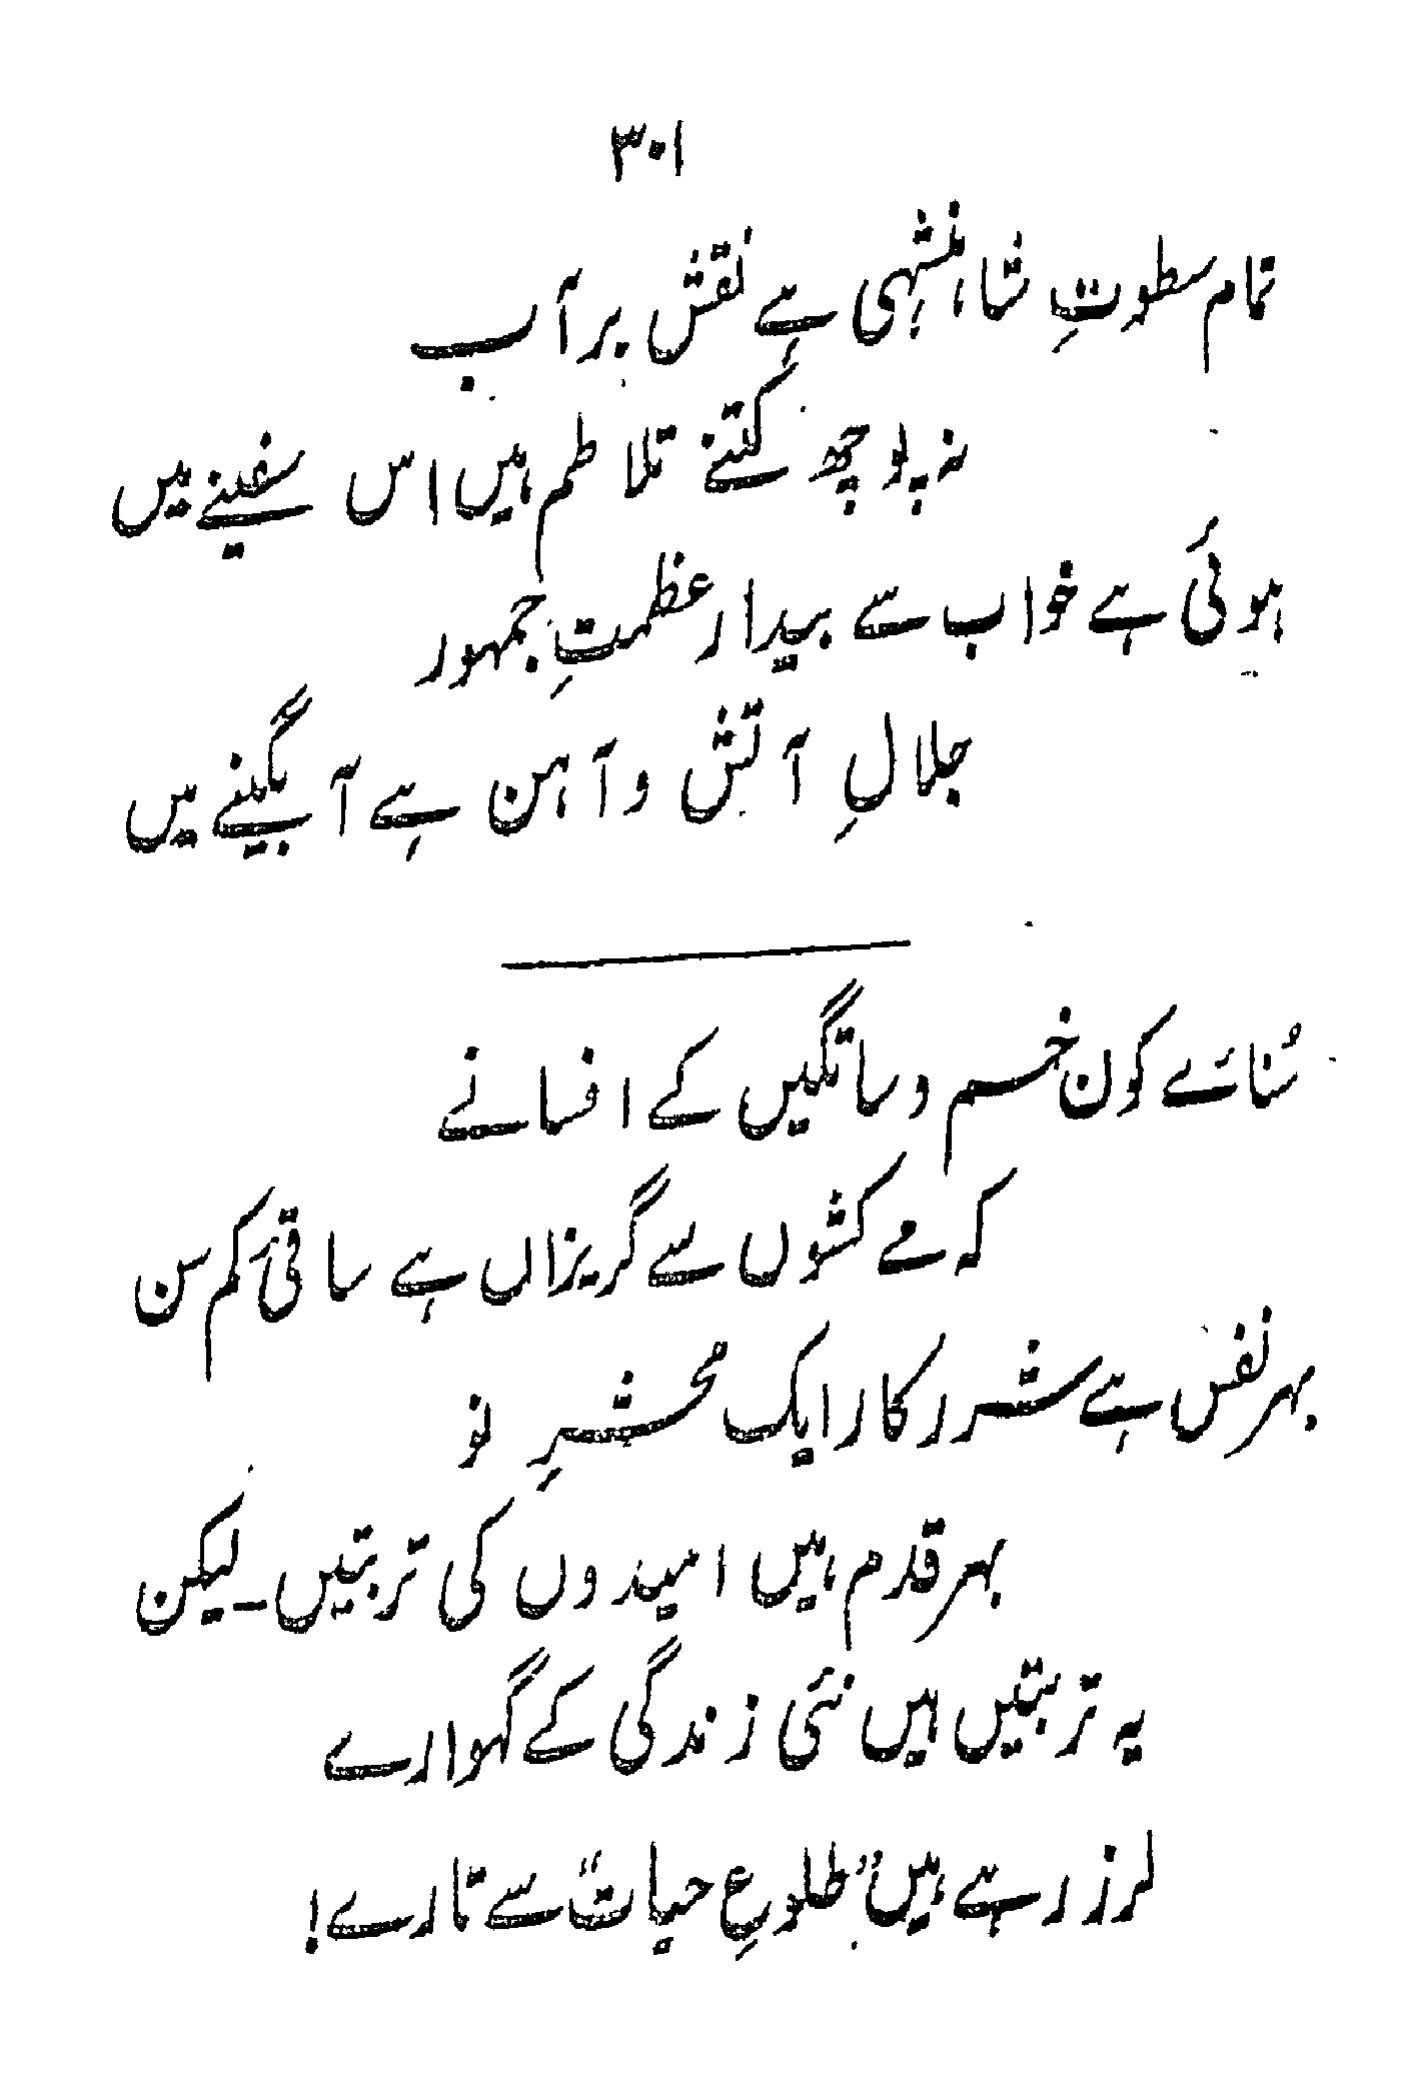 ۳۰۱
تمام سطوتِ شاہنشہی ہے نقش بر آب
نہ پوچھ کتنے تلاطم ہیں اس سفینے میں
ہوئی ہے خواب سے بیدار عظمتِ جمہور
جلالِ آتش و آہن ہے آبگینے میں
سُنائے کون خم و ساتگیں کے افسانے
کہ مے کشوں سے گریزاں ہے ساقیٔ کم سن
بہر نفس ہے شرر کار ایک محشرِ نو
بہر قدم ہیں امیدوں کی تربتیں۔ لیکن
یہ تربتیں ہیں نئی زندگی کے گہوارے
لرز رہے ہیں "طلوعِ حیات" سے تارے!